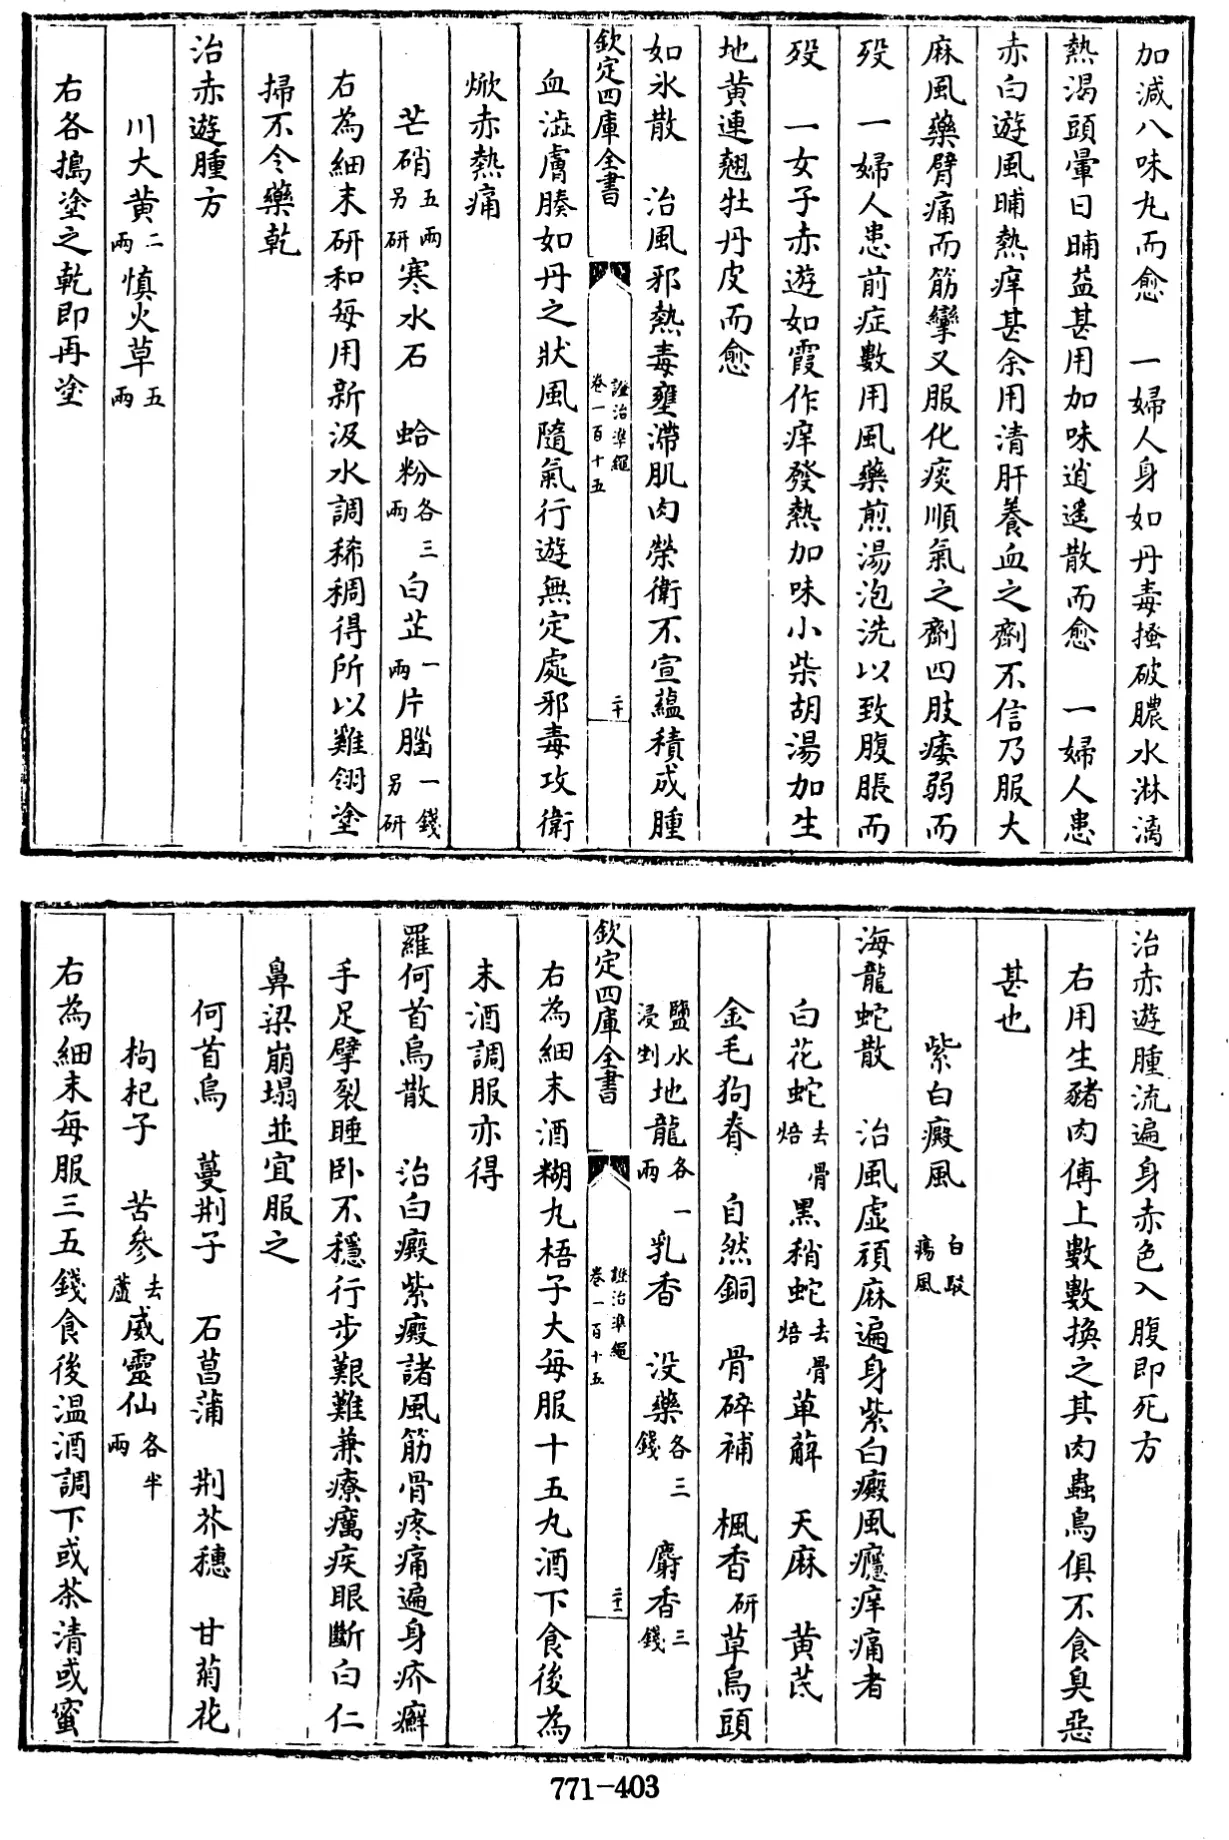 加減八味丸而愈　一婦人身如丹毒搔破膿水淋漓
熱渴頭暈日晡益甚用加味逍遙散而愈　一婦人患
赤白遊風晡熱痒甚余用清肝養血之劑不信乃服大
麻風藥臂痛而筋攣又服化痰順氣之劑四肢痿弱而
歿　一婦人患前症數用風藥煎湯泡洗以致腹脹而
歿　一女子赤遊如霞作痒發熱加味小柴胡湯加生
地黄連翹牡丹皮而愈
如氷散　治風邪熱毒壅滯肌肉榮衛不宣蘊積成腫
欽定四庫全書　證治準繩　卷一百十五　二十
血澁膚腠如丹之狀風隨氣行遊無定處邪毒攻衝
焮赤熱痛
芒硝五兩另研寒水石　蛤粉各三兩白芷一兩片腦一錢另研
右為細末研和每用新汲水調稀稠得所以雞翎塗
掃不令藥乾
治赤遊腫方
川大黄二兩慎火草五兩
右各搗塗之乾即再塗
治赤遊腫流遍身赤色入腹即死方
右用生豬肉傅上數數換之其肉蟲鳥俱不食臭惡
甚也
紫白癜風　白駁癘風
海龍蛇散　治風虛頑麻遍身紫白癜風癮痒痛者
白花蛇去骨焙黑稍蛇去骨焙萆薢　天麻　黄芪
金毛狗脊　自然銅　骨碎補　楓香研草烏頭
鹽水浸剉地龍各一兩乳香　没藥各三錢　麝香三錢
欽定四庫全書　證治準繩　卷一百十五　二十一
右為細末酒糊丸梧子大每服十五丸酒下食後為
末酒調服亦得
羅何首烏散　治白癜紫癜諸風筋骨疼痛遍身疥癬
手足擘裂睡卧不穩行步艱難兼療癘疾眼斷白仁
鼻梁崩塌並宜服之
何首烏　蔓荆子　石菖蒲　荆芥穗　甘菊花
枸杞子　苦參去蘆威靈仙各半兩
右為細末每服三五錢食後温酒調下或茶清或蜜
771-403